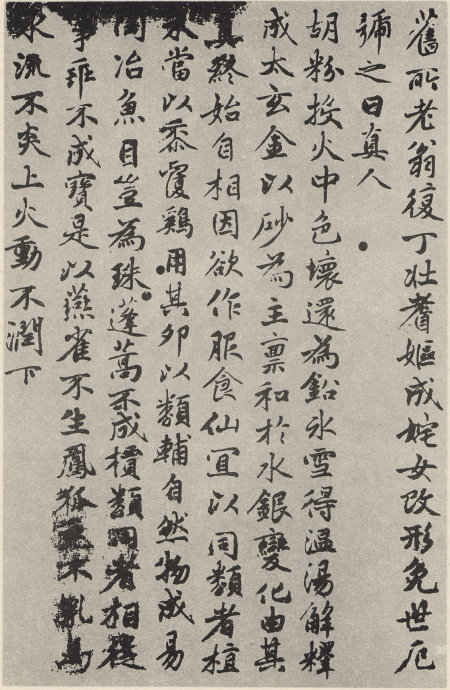 舊所老翁復丁壯耆嫗成姹女改形免世厄
號之曰真人
胡粉投火中色壞還為鉛冰雪得溫湯解釋
成太玄金以砂為主稟和於水銀變化由其
真終始自相因欲作服食仙宜以同類者植
禾當以黍覆鷄用其卵以類輔自然物成易
陶冶魚目豈為珠蓬蒿不成檟類同者相從
事乖不成寶是以燕雀不生鳳狐兔不乳馬
水流不炎上火動不潤下